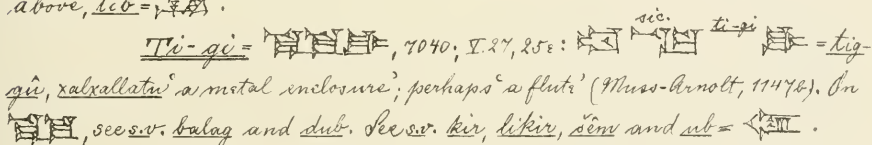 above, lib = .
Ti-gi = , 7040; V.27, 25e: sic. ti-gi = tig-
gû, xalxallatu ‘a metal enclosure’; perhaps ‘a flute’ (Muss-Arnolt, 1147b). On
, see s.v. balag and dub. See s.v. kir, likir, šêm and ub = .